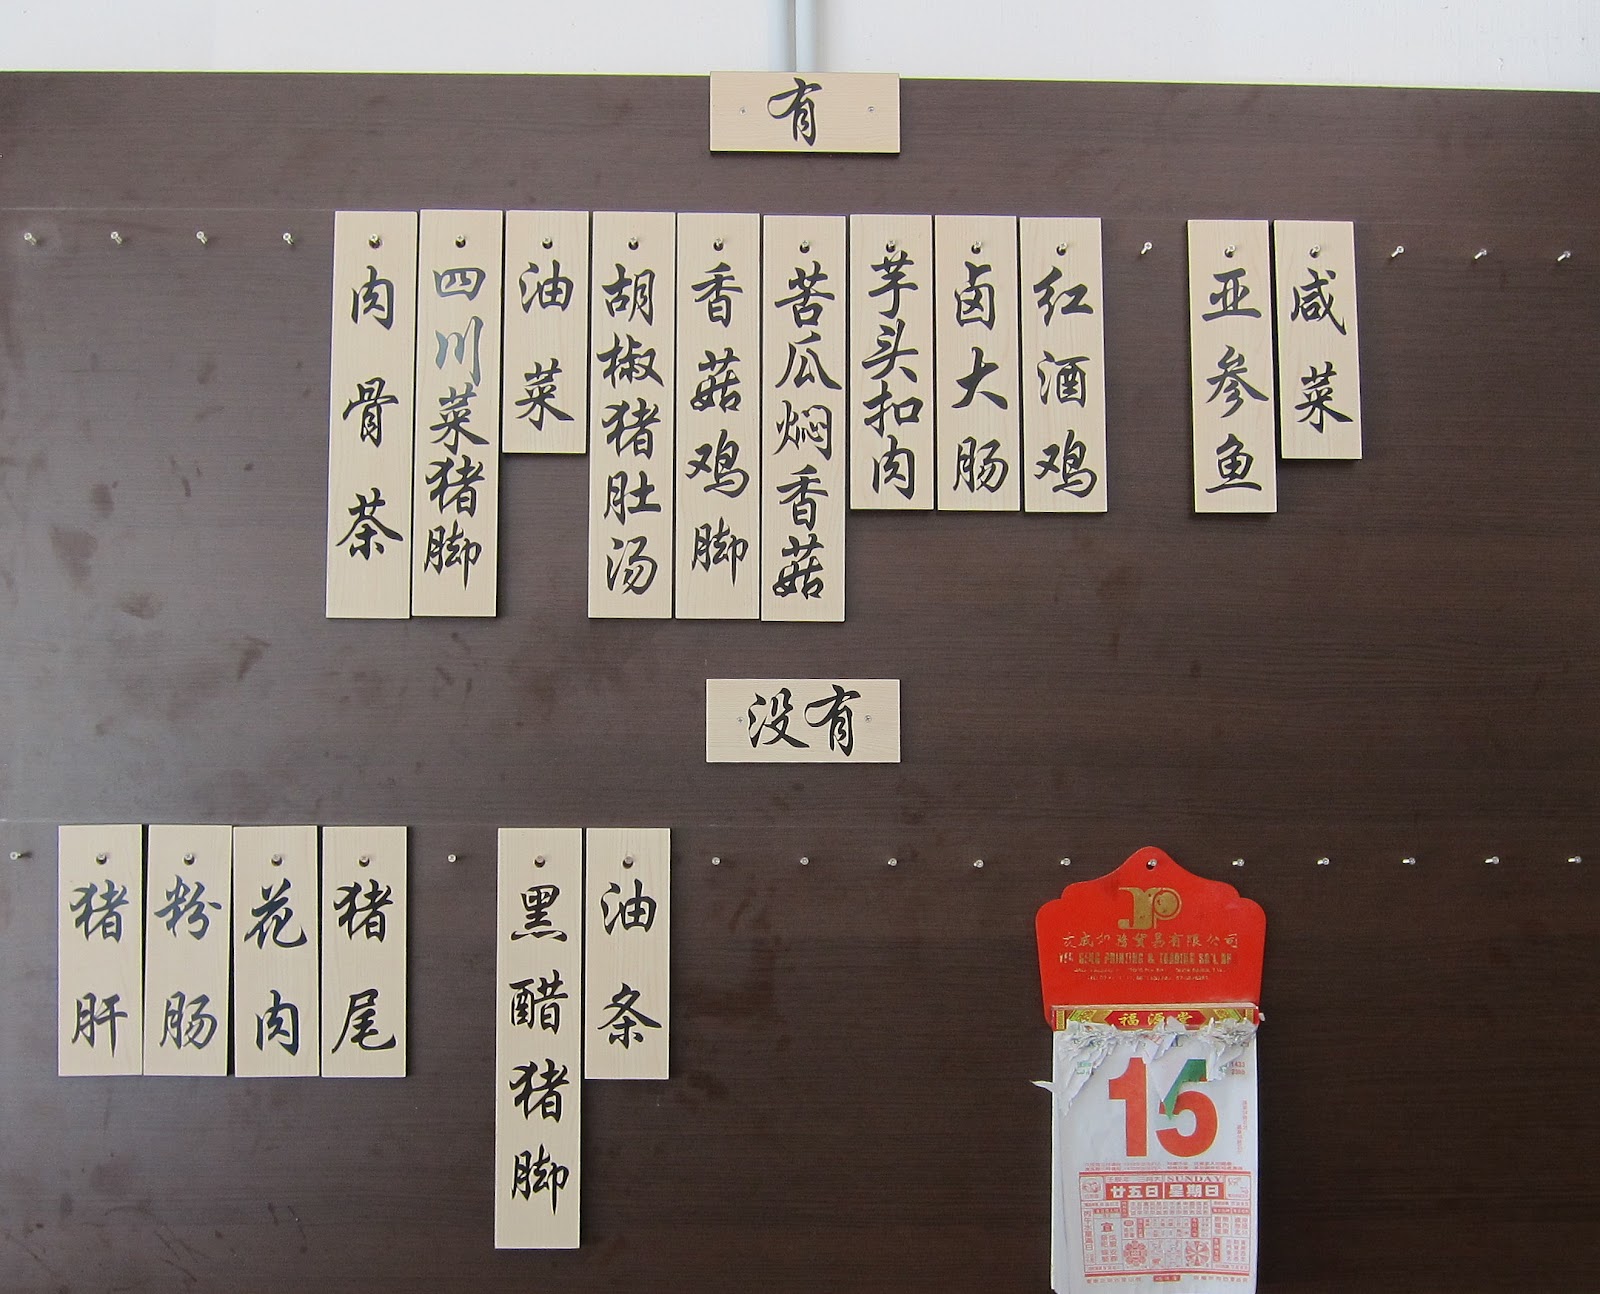 有
肉骨茶
四川菜猪脚
油菜
胡椒猪肚汤
香菇鸡脚
苦瓜焖香菇
芋头扣肉
卤大肠
红酒鸡
亚参鱼
咸菜
没有
猪肝
粉肠
花肉
猪尾
黑醋猪脚
油条
JP
貿易有限公司
PRINTING & TRADING
福源堂
15
SUNDAY
廿五日 星期日